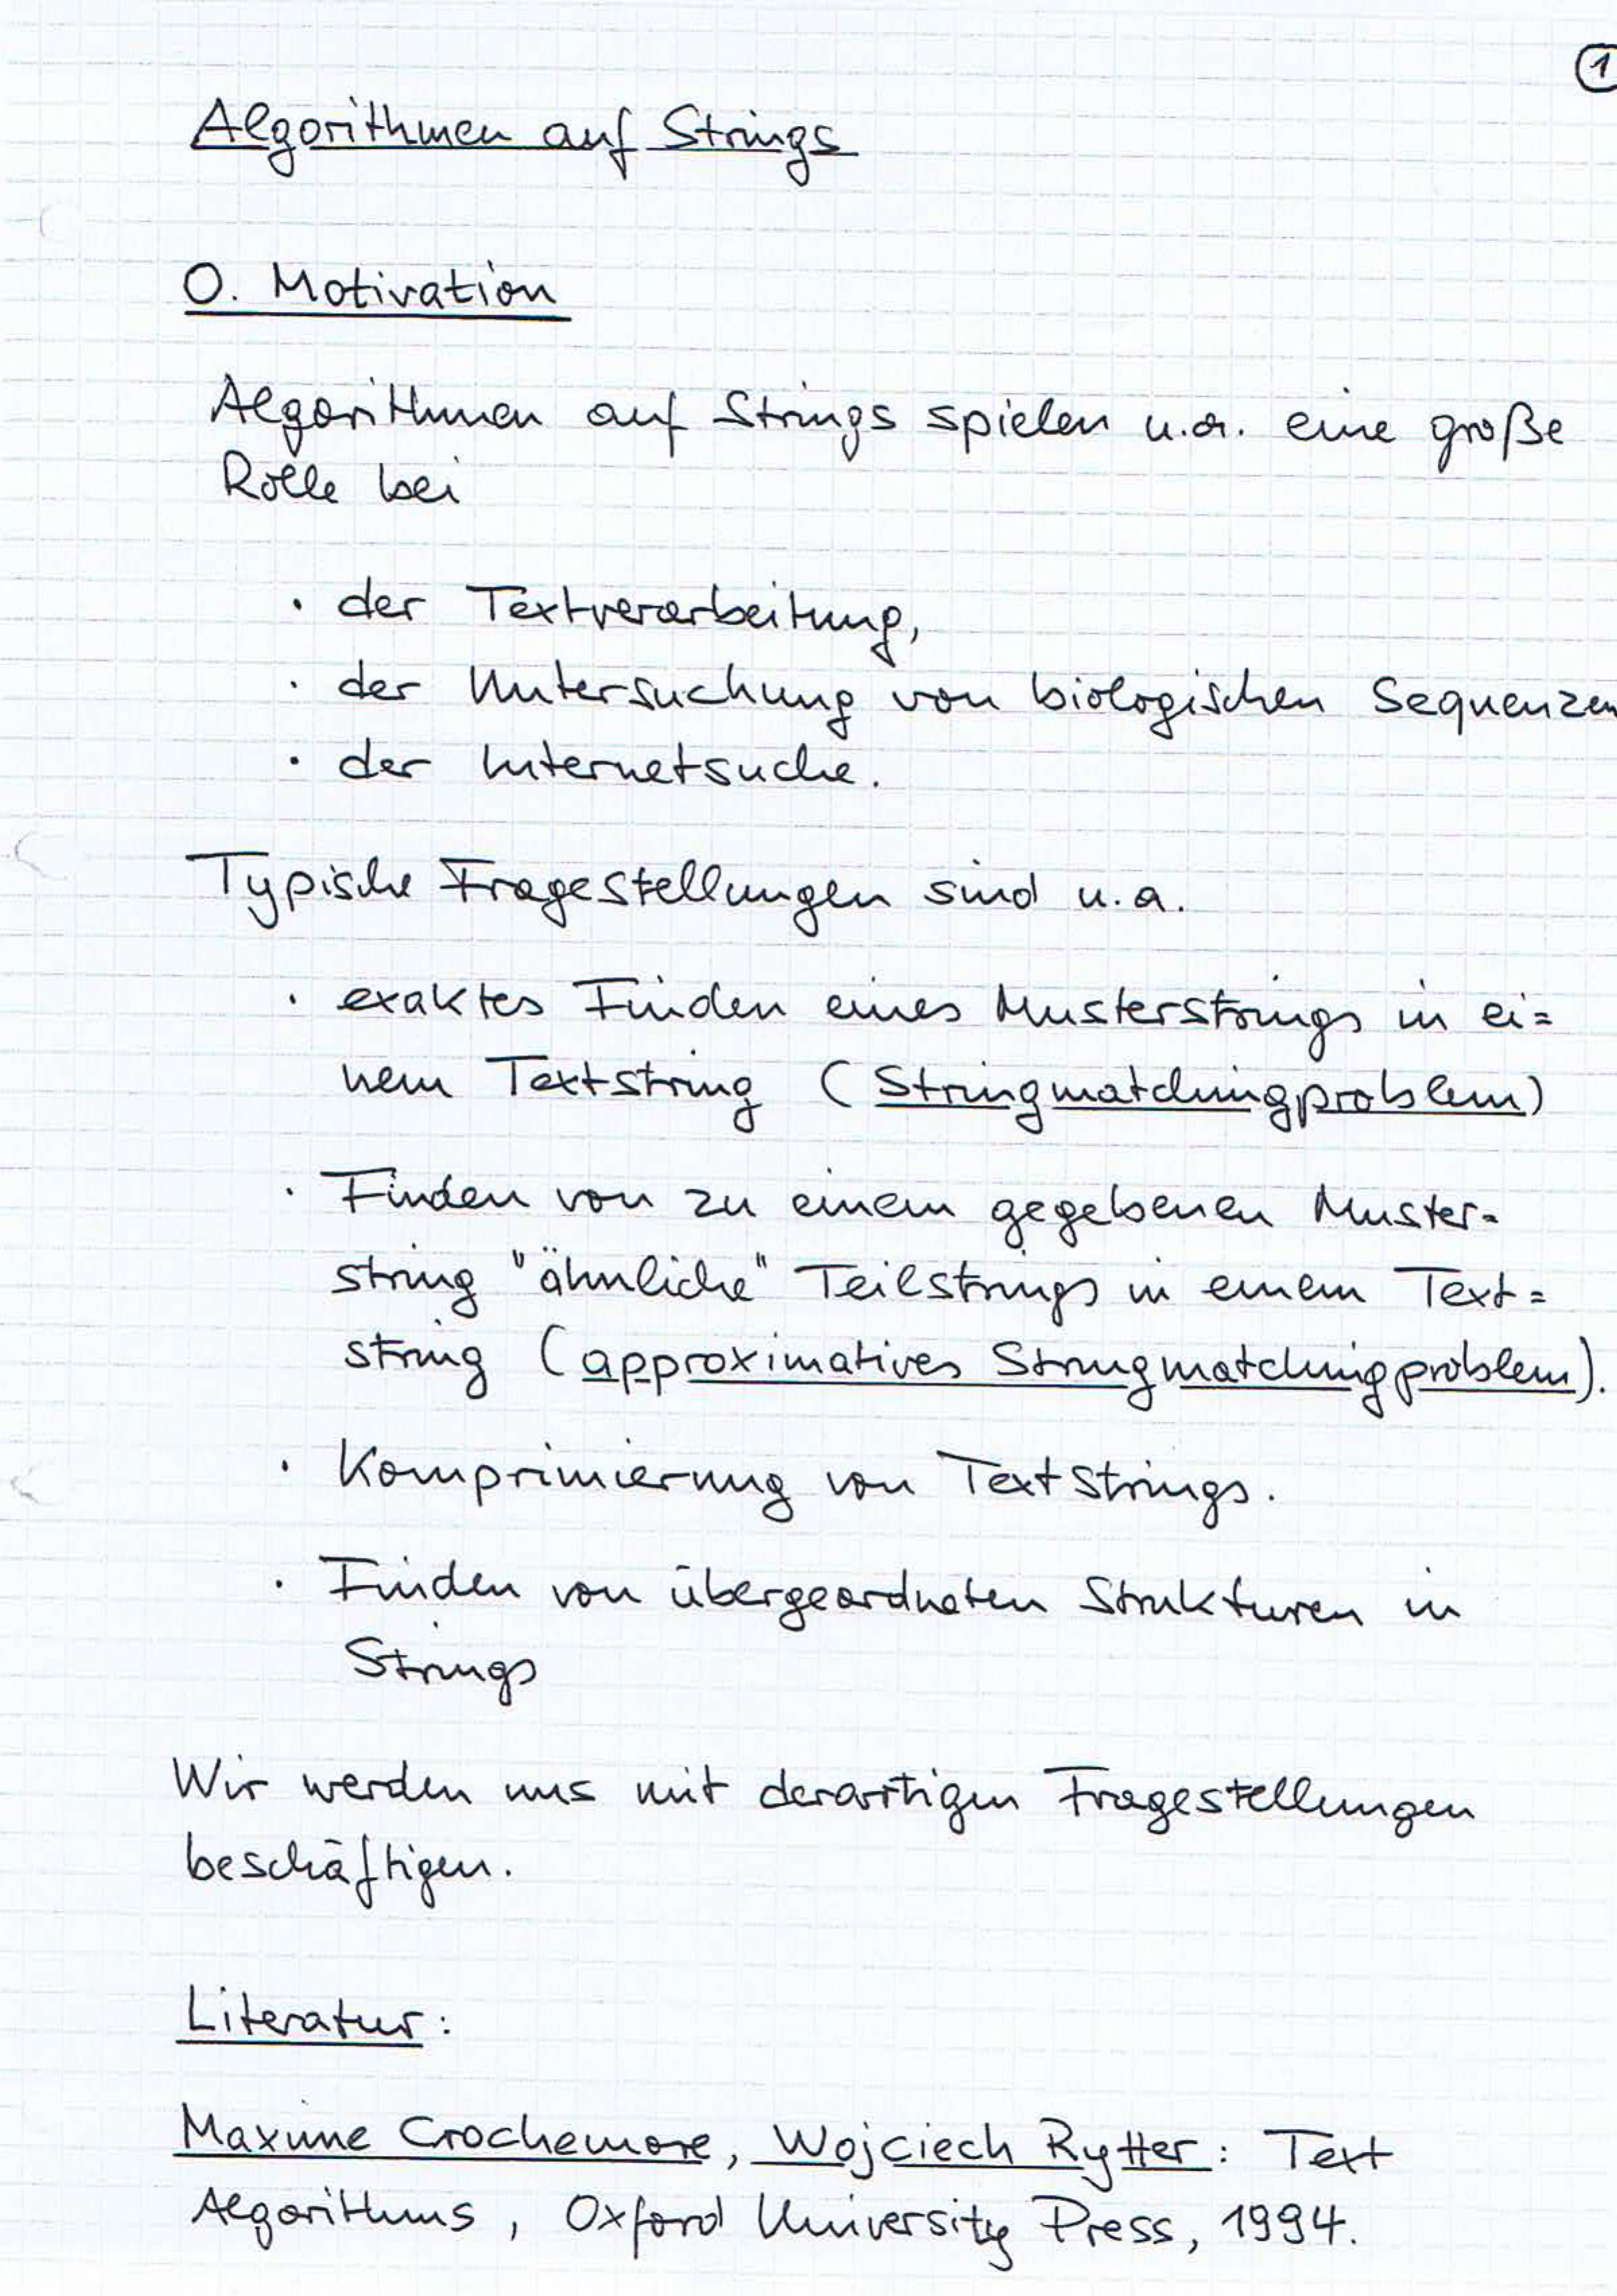 1
Algorithmen auf Strings
0. Motivation
Algorithmen auf Strings spielen u.a. eine große
Rolle bei
· der Textverarbeitung,
· der Untersuchung von biologischen Sequenzen
· der Internetsuche.
Typische Fragestellungen sind u.a.
· exaktes Finden eines Musterstrings in ei=
nem Textstring (Stringmatchingproblem)
· Finden von zu einem gegebenen Muster-
string "ähnliche" Teilstrings in einem Text=
string (approximatives Stringmatchingproblem).
· Komprimierung von Textstrings.
· Finden von übergeordneten Strukturen in
Strings
Wir werden uns mit derartigen Fragestellungen
beschäftigen.
Literatur:
Maxime Crochemore, Wojciech Rytter: Text
Algorithms, Oxford University Press, 1994.